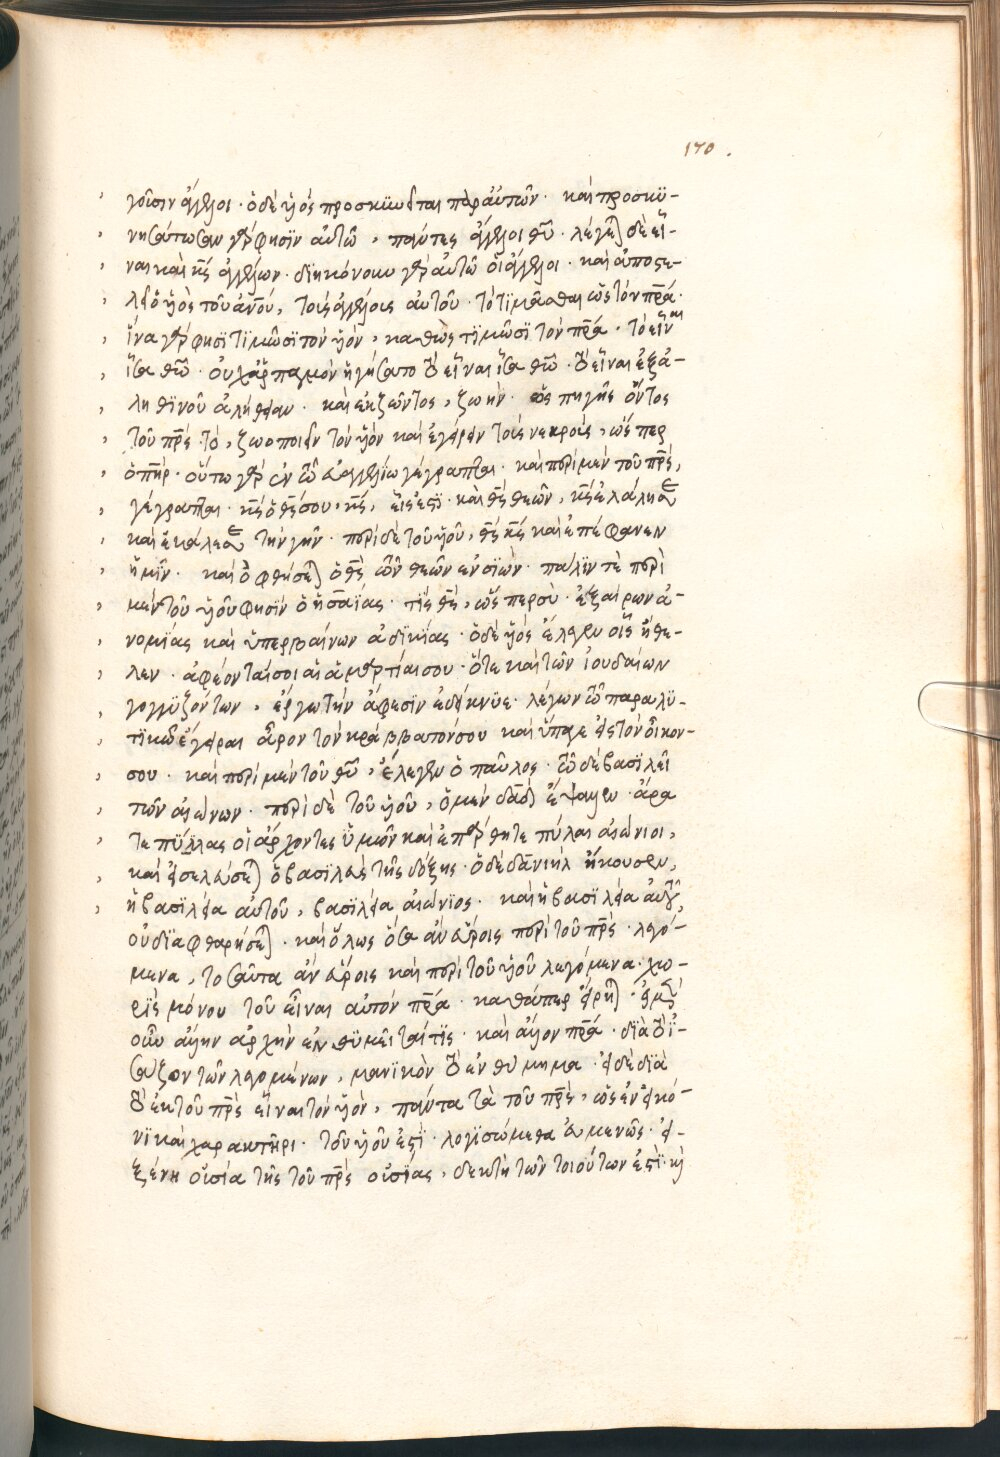 170.
γοῦσιν ἄγγελοι · ὁ δὲ υἱὸς προσκυνεῖται παρ αὐτῶν · καὶ προσκυ-
νησάτωσαν γάρ φησϊν αὐτῶ, πάντες ἄγγελοι θῦ · λέγεται δὲ εἶ-
ναι καὶ κς ἀγγέλων · διηκόνουν γὰρ αὐτῶ οἱ ἄγγελοι · καὶ ἀποστέ-
λλει ὁ υἱὸς τοῦ ἀνου, τοὺς ἀγγέλους αὐτοῦ · τὸ τϊμᾶσθαι ὡς τὸν πρα ·
ἵνα γάρ φησϊ τϊμῶσϊ τὸν υἱὸν, καθὼς τϊμῶσϊ τὸν πρα · τὸ εἶναι
ἴσα θῶ · οὐχ ἁρπαγμὸν ἡγήσατο τὸ εἶναι ἴσα θῶ · τὸ εἶναι ἐξ ἀ-
ληθϊνοῦ ἀλήθειαν · καὶ ἐκ ζῶντος, ζωὴν · ὡς πηγῆς ὄντος
τοῦ πρς · τὸ, ζωοποιεῖν τὸν υἱὸν καὶ ἐγείρειν τοὺς νεκροὺς, ὥσπερ
ὁ πηρ · οὕτω γὰρ ἐν τῶ εὐαγγελίω γέγραπται · καὶ περὶ μὲν τοῦ πρς,
γέγραπται · κς ὁ θς σου, κς, εἷς ἐστϊ · καὶ θς θεῶν, κς ἐλάλησε
καὶ ἐκάλεσε τὴν γῆν · περὶ δὲ τοῦ υἱοῦ, θς κς καὶ ἐπέφανεν
ἡμῖν · καὶ ὀφθήσεται ὁ θς τῶν θεῶν ἐν σϊών · πάλϊν τὲ περὶ
μὲν τοῦ υἱοῦ φησϊν ὁ ἡσαΐας · τίς θς, ὥσπερ σὺ · ἐξαίρων ἀ-
νομίας καὶ ὑπερβαίνων ἀδϊκίας · ὁ δὲ υἱὸς ἔλεγεν οἷς ἤθε-
λεν · ἀφέονταί σοι αἱ ἁμαρτίαι σου · ὅτε καὶ τῶν ἰουδαίων
γογγϋζόντων, ἔργω τὴν ἄφεσϊν ἐδείκνϋε · λέγων τῶ παραλϋ-
τϊκῶ ἔγειραι ἆρον τὸν κράββατόν σου καὶ ὕπαγε εἰς τὸν οἶκον-
σου · καὶ περὶ μὲν τοῦ θῦ, ἔλεγεν ὁ παῦλος · τῶ δὲ βασϊλεῖ
τῶν αἰώνων · περὶ δὲ τοῦ υἱοῦ, ὁ μὲν δαδ ἔψαλλεν · ἄρα
τε πύλας οἱ ἄρχοντες ὑμῶν καὶ ἐπάρθητε πύλαι αἰώνιοι,
καὶ εἰσελεύσεται ὁ βασϊλεὺς τῆς δόξης · ὁ δὲ δανιὴλ ἤκουσεν,
ἡ βασϊλεία αὐτοῦ, βασϊλεία αἰώνϊος · καὶ ἡ βασϊλεία αὐτοῦ,
οὐ δϊαφθαρήσεται · καὶ ὅλως ὅσα ἂν εὕροις περὶ τοῦ πρς · λεγό-
μενα, τοσαῦτα ἂν εὕροις καὶ περὶ τοῦ υἱοῦ λεγόμενα · χω-
ρὶς μόνου τοῦ εἶναι αὐτὸν πρα · καθάπερ εἴρηται ·
οὖν ἀρχὴν ἐνθϋμεῖταί τϊς · καὶ πρα · δϊὰ τὸ ἰ-
σάζον τῶν λεγομένων, μανϊκὸν τὸ ἐνθύμημα · εἰ δὲ δϊὰ
τὸ ἐκ τοῦ πρς εἶναι τὸν υἱὸν, πάντα τὰ τοῦ πρς, ὡς ἐν εἰκό-
νϊ καὶ χαρακτῆρι · τοῦ υἱοῦ ἐστϊ · λογϊσώμεθα εὐμενῶς · εἰ-
ξένη οὐσία τῆς τοῦ πρς οὐσϊας, δεκτὴ τῶν τοιούτων ἐστϊ · κὶ